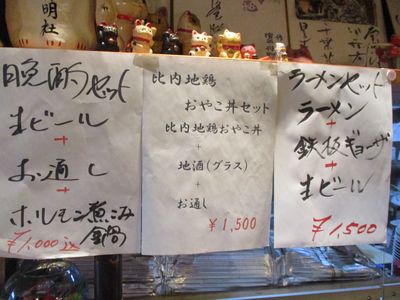 明社
晩酌セット
生ビール
+
お通し
+
ホルモン煮こみ
¥1,000
比内地鶏
おやこ丼セット
比内地鶏おやこ丼
+
地酒(グラス)
+
お通し
¥1,500
ラーメンセット
ラーメン
+
鉄板ギョーザ
+
生ビール
¥1,500